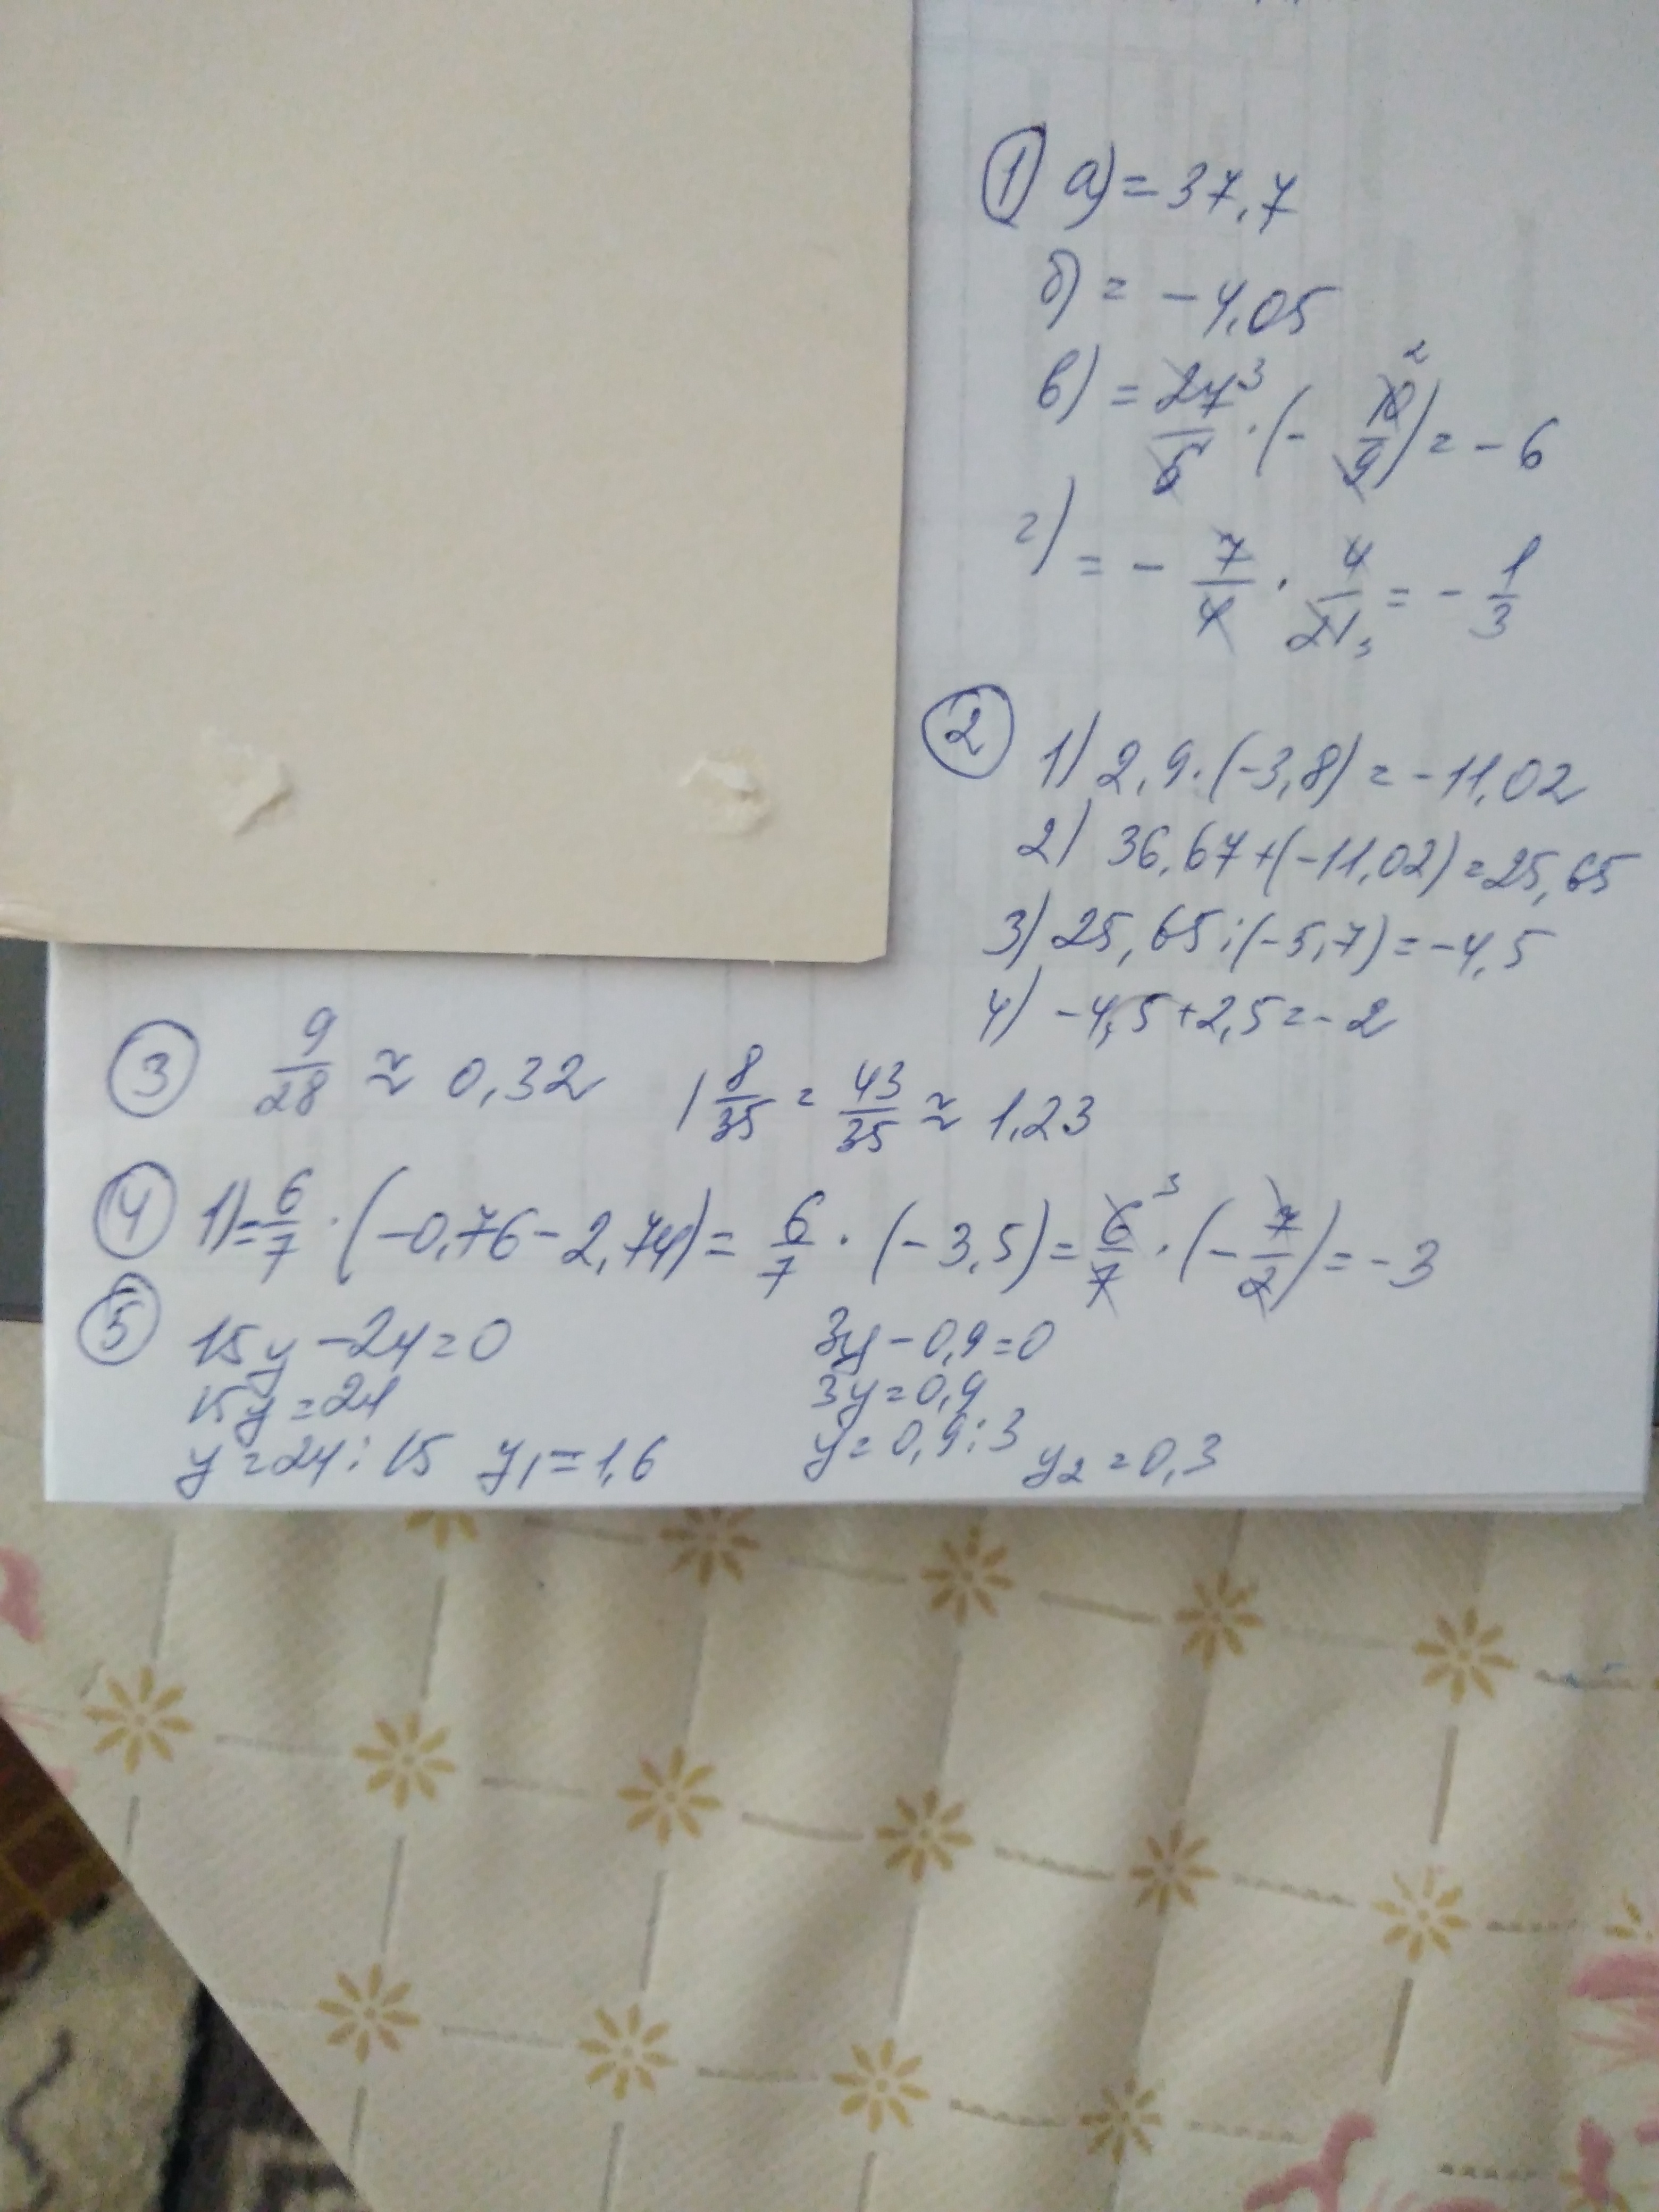 ① а) = 37,7
б) = -4,05
в) = 27/5 ³ · (- 10/9 ²) = -6
г) = - 7/4 · 4/21 ₃ = - 1/3
② 1) 2,9·(-3,8) = -11,02
2) 36,67+(-11,02)=25,65
3) 25,65:(-5,7)=-4,5
4) -4,5+2,5=-2
③ 9/28 ≈ 0,32 1 8/35 = 43/35 ≈ 1,23
④ 1)= 6/7 · (-0,76-2,74)= 6/7 · (-3,5)= 6/7 ³ · (- 7/2)=-3
⑤ 15y-24=0 3y-0,9=0
15y=24 3y=0,9
y=24:15 y₁=1,6 y=0,9:3 y₂=0,3